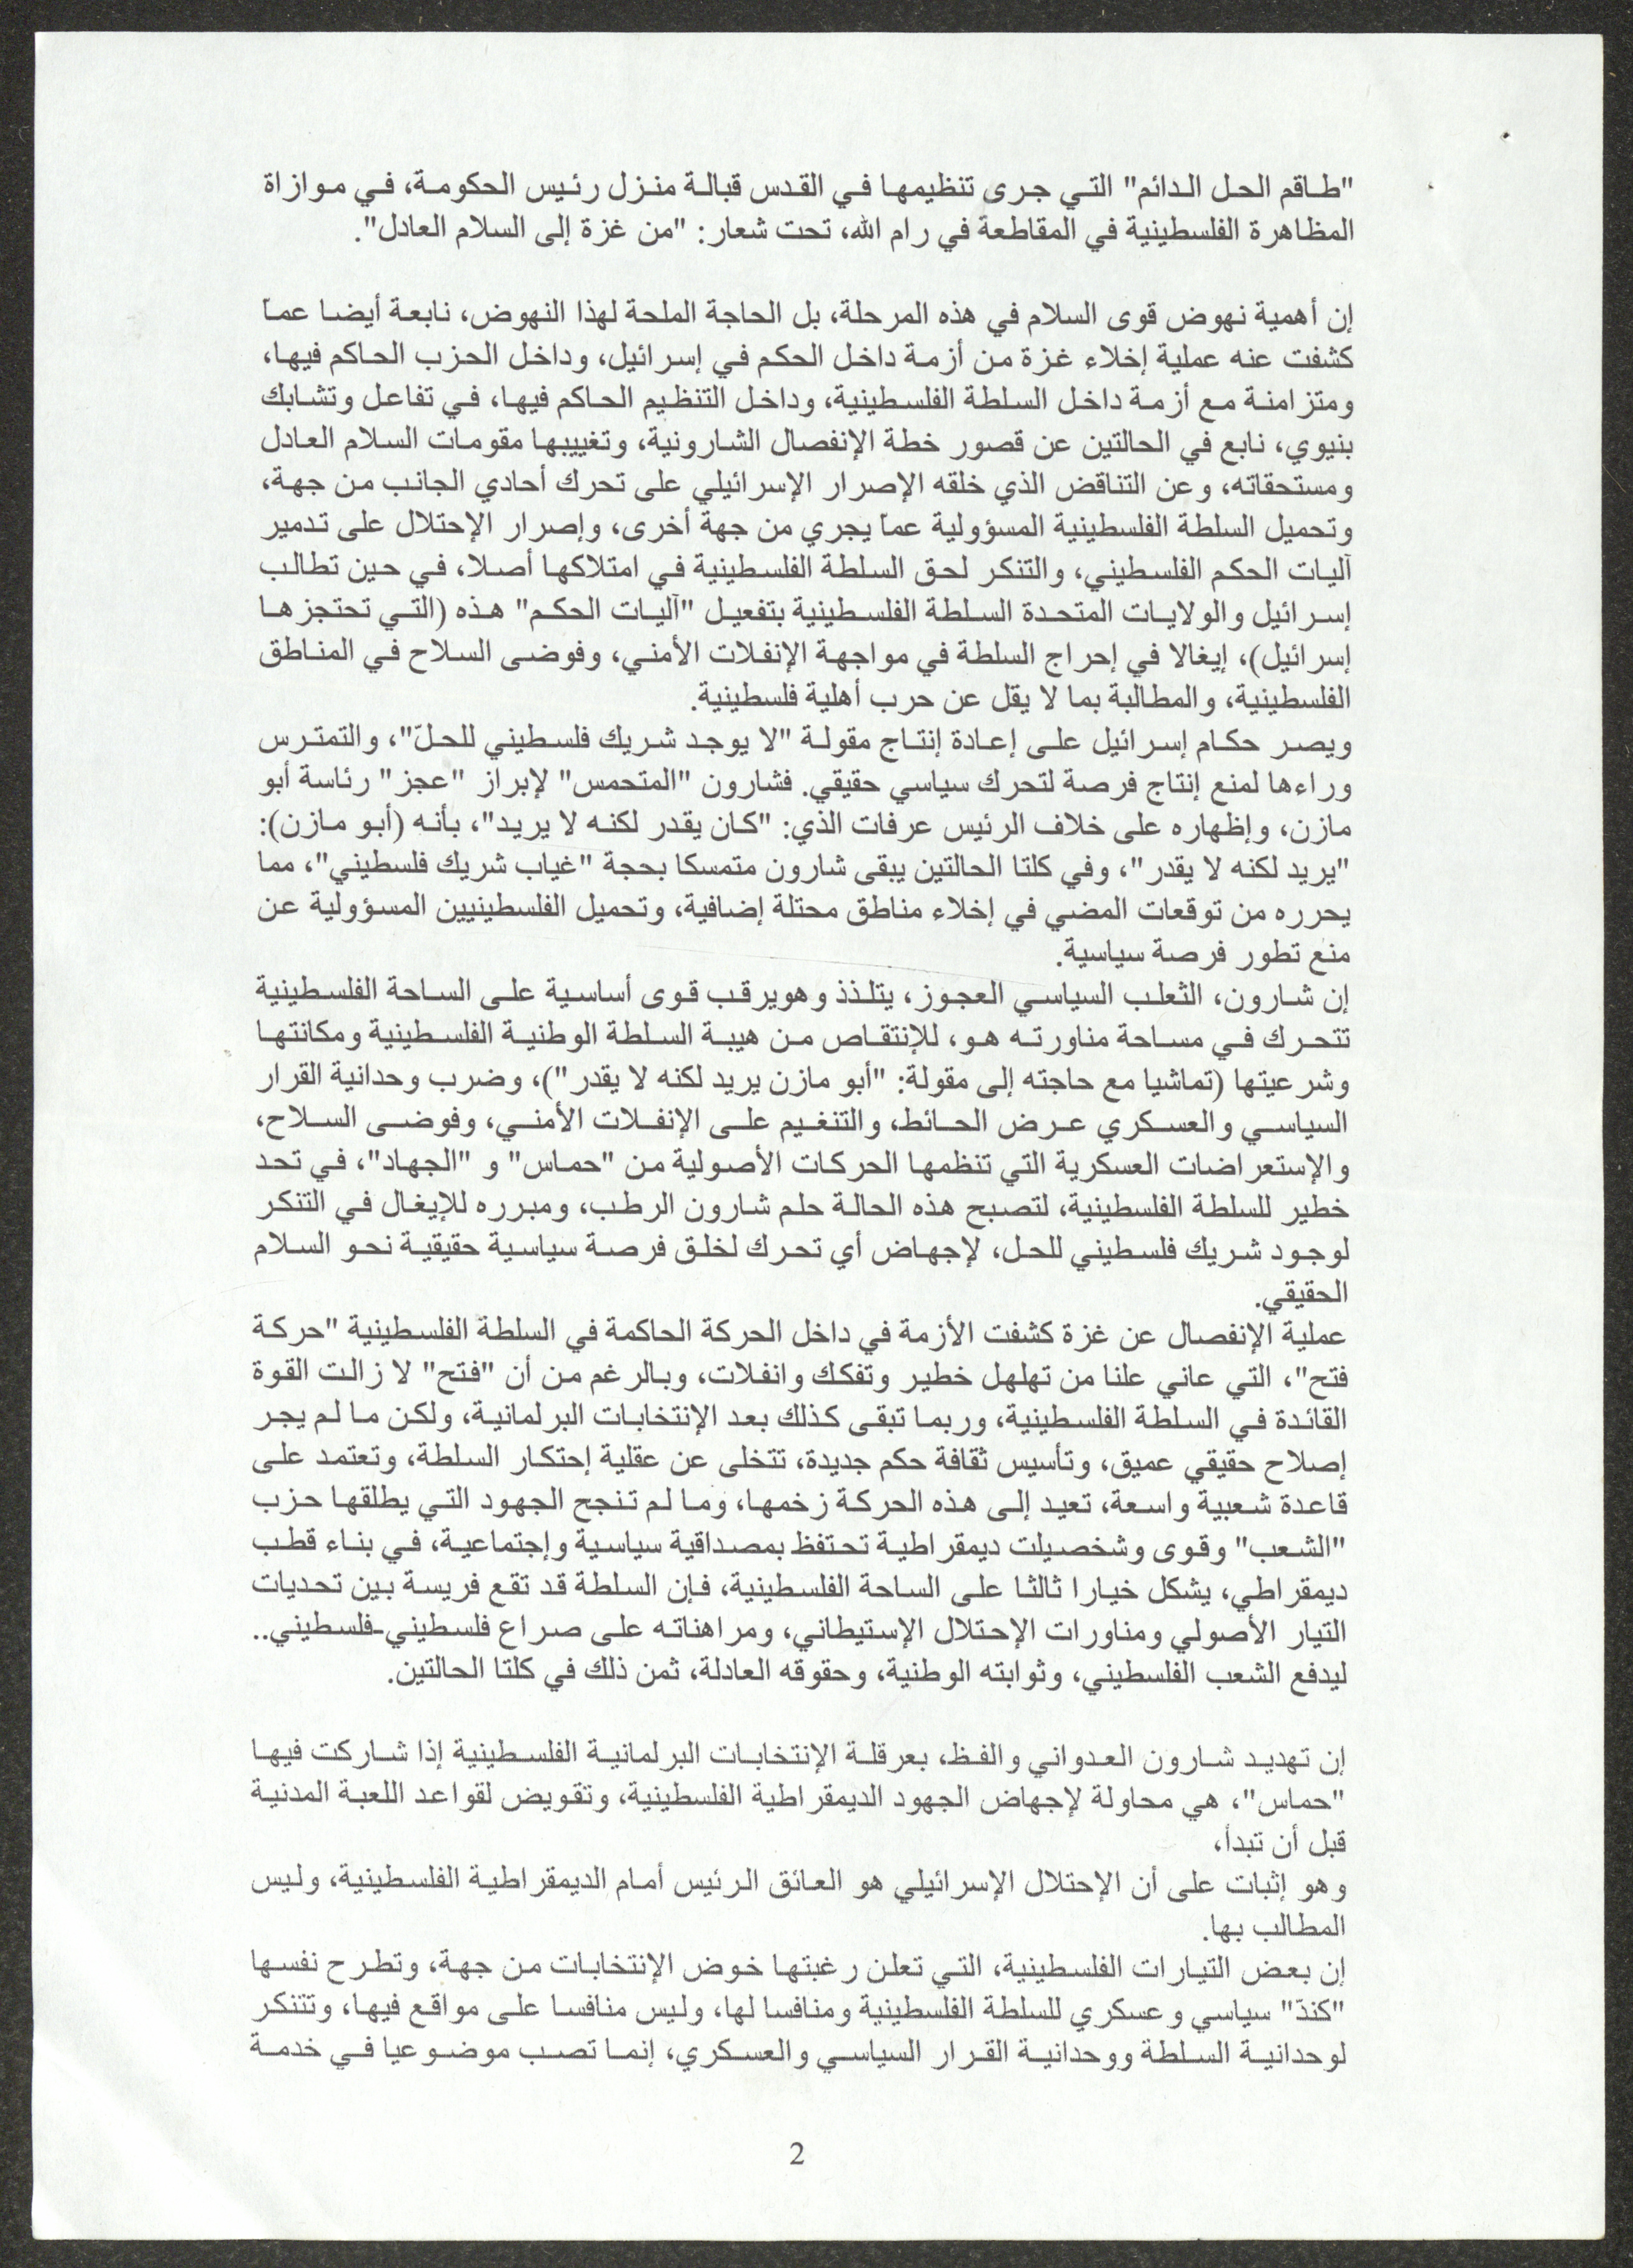 "طاقم الحل الدائم" التي جرى تنظيمها في القدس قبالة منزل رئيس الحكومة، في موازاة
المظاهرة الفلسطينية في المقاطعة في رام الله، تحت شعار: "من غزة إلى السلام العادل".
إن أهمية نهوض قوى السلام في هذه المرحلة، بل الحاجة الملحة لهذا النهوض، نابعة أيضا عما
كشفت عنه عملية إخلاء غزة من أزمة داخل الحكم في إسرائيل، وداخل الحزب الحاكم فيها،
ومتزامنة مع أزمة داخل السلطة الفلسطينية، وداخل التنظيم الحاكم فيها، في تفاعل وتشابك
بنيوي، نابع في الحالتين عن قصور خطة الإنفصال الشارونية، وتغييبها مقومات السلام العادل
ومستحقاته، وعن التناقض الذي خلقه الإصرار الإسرائيلي على تحرك أحادي الجانب من جهة،
وتحميل السلطة الفلسطينية المسؤولية عما يجري من جهة أخرى، وإصرار الإحتلال على تدمير
آليات الحكم الفلسطيني، والتنكر لحق السلطة الفلسطينية في امتلاكها أصلا، في حين تطالب
إسرائيل والولايات المتحدة السلطة الفلسطينية بتفعيل "آليات الحكم" هذه (التي تحتجزها
إسرائيل)، إيغالا في إحراج السلطة في مواجهة الإنفلات الأمني، وفوضى السلاح في المناطق
الفلسطينية، والمطالبة بما لا يقل عن حرب أهلية فلسطينية.
ويصر حكام إسرائيل على إعادة إنتاج مقولة "لا يوجد شريك فلسطيني للحلّ"، والتمترس
وراءها لمنع إنتاج فرصة لتحرك سياسي حقيقي. فشارون "المتحمس" لإبراز "عجز" رئاسة أبو
مازن، وإظهاره على خلاف الرئيس عرفات الذي: "كان يقدر لكنه لا يريد"، بأنه (أبو مازن):
"يريد لكنه لا يقدر"، وفي كلتا الحالتين يبقى شارون متمسكا بحجة "غياب شريك فلسطيني"، مما
يحرره من توقعات المضي في إخلاء مناطق محتلة إضافية، وتحميل الفلسطينيين المسؤولية عن
منع تطور فرصة سياسية.
إن شارون، الثعلب السياسي العجوز، يتلذذ وهويرقب قوى أساسية على الساحة الفلسطينية
تتحرك في مساحة مناورته هو، للإنتقاص من هيبة السلطة الوطنية الفلسطينية ومكانتها
وشرعيتها (تماشيا مع حاجته إلى مقولة: "أبو مازن يريد لكنه لا يقدر")، وضرب وحدانية القرار
السياسي والعسكري عرض الحائط، والتنغيم على الإنفلات الأمني، وفوضى السلاح،
والإستعراضات العسكرية التي تنظمها الحركات الأصولية من "حماس" و "الجهاد"، في تحد
خطير للسلطة الفلسطينية، لتصبح هذه الحالة حلم شارون الرطب، ومبرره للإيغال في التنكر
لوجود شريك فلسطيني للحل، لإجهاض أي تحرك لخلق فرصة سياسية حقيقية نحو السلام
الحقيقي.
عملية الإنفصال عن غزة كشفت الأزمة في داخل الحركة الحاكمة في السلطة الفلسطينية "حركة
فتح"، التي عاني علنا من تهلهل خطير وتفكك وانفلات، وبالرغم من أن "فتح" لا زالت القوة
القائدة في السلطة الفلسطينية، وربما تبقى كذلك بعد الإنتخابات البرلمانية، ولكن ما لم يجر
إصلاح حقيقي عميق، وتأسيس ثقافة حكم جديدة، تتخلى عن عقلية إحتكار السلطة، وتعتمد على
قاعدة شعبية واسعة، تعيد إلى هذه الحركة زخمها، وما لم تنجح الجهود التي يطلقها حزب
"الشعب" وقوى وشخصيلت ديمقراطية تحتفظ بمصداقية سياسية وإجتماعية، في بناء قطب
ديمقراطي، يشكل خيارا ثالثا على الساحة الفلسطينية، فإن السلطة قد تقع فريسة بين تحديات
التيار الأصولي ومناورات الإحتلال الإستيطاني، ومراهناته على صراع فلسطيني-فلسطيني..
ليدفع الشعب الفلسطيني، وثوابته الوطنية، وحقوقه العادلة، ثمن ذلك في كلتا الحالتين.
إن تهديد شارون العدواني والفظ، بعرقلة الإنتخابات البرلمانية الفلسطينية إذا شاركت فيها
"حماس"، هي محاولة لإجهاض الجهود الديمقراطية الفلسطينية، وتقويض لقواعد اللعبة المدنية
قبل أن تبدأ،
وهو إثبات على أن الإحتلال الإسرائيلي هو العائق الرئيس أمام الديمقراطية الفلسطينية، وليس
المطالب بها.
إن بعض التيارات الفلسطينية، التي تعلن رغبتها خوض الإنتخابات من جهة، وتطرح نفسها
"كندّ" سياسي وعسكري للسلطة الفلسطينية ومنافسا لها، وليس منافسا على مواقع فيها، وتتنكر
لوحدانية السلطة ووحدانية القرار السياسي والعسكري، إنما تصب موضوعيا في خدمة
2